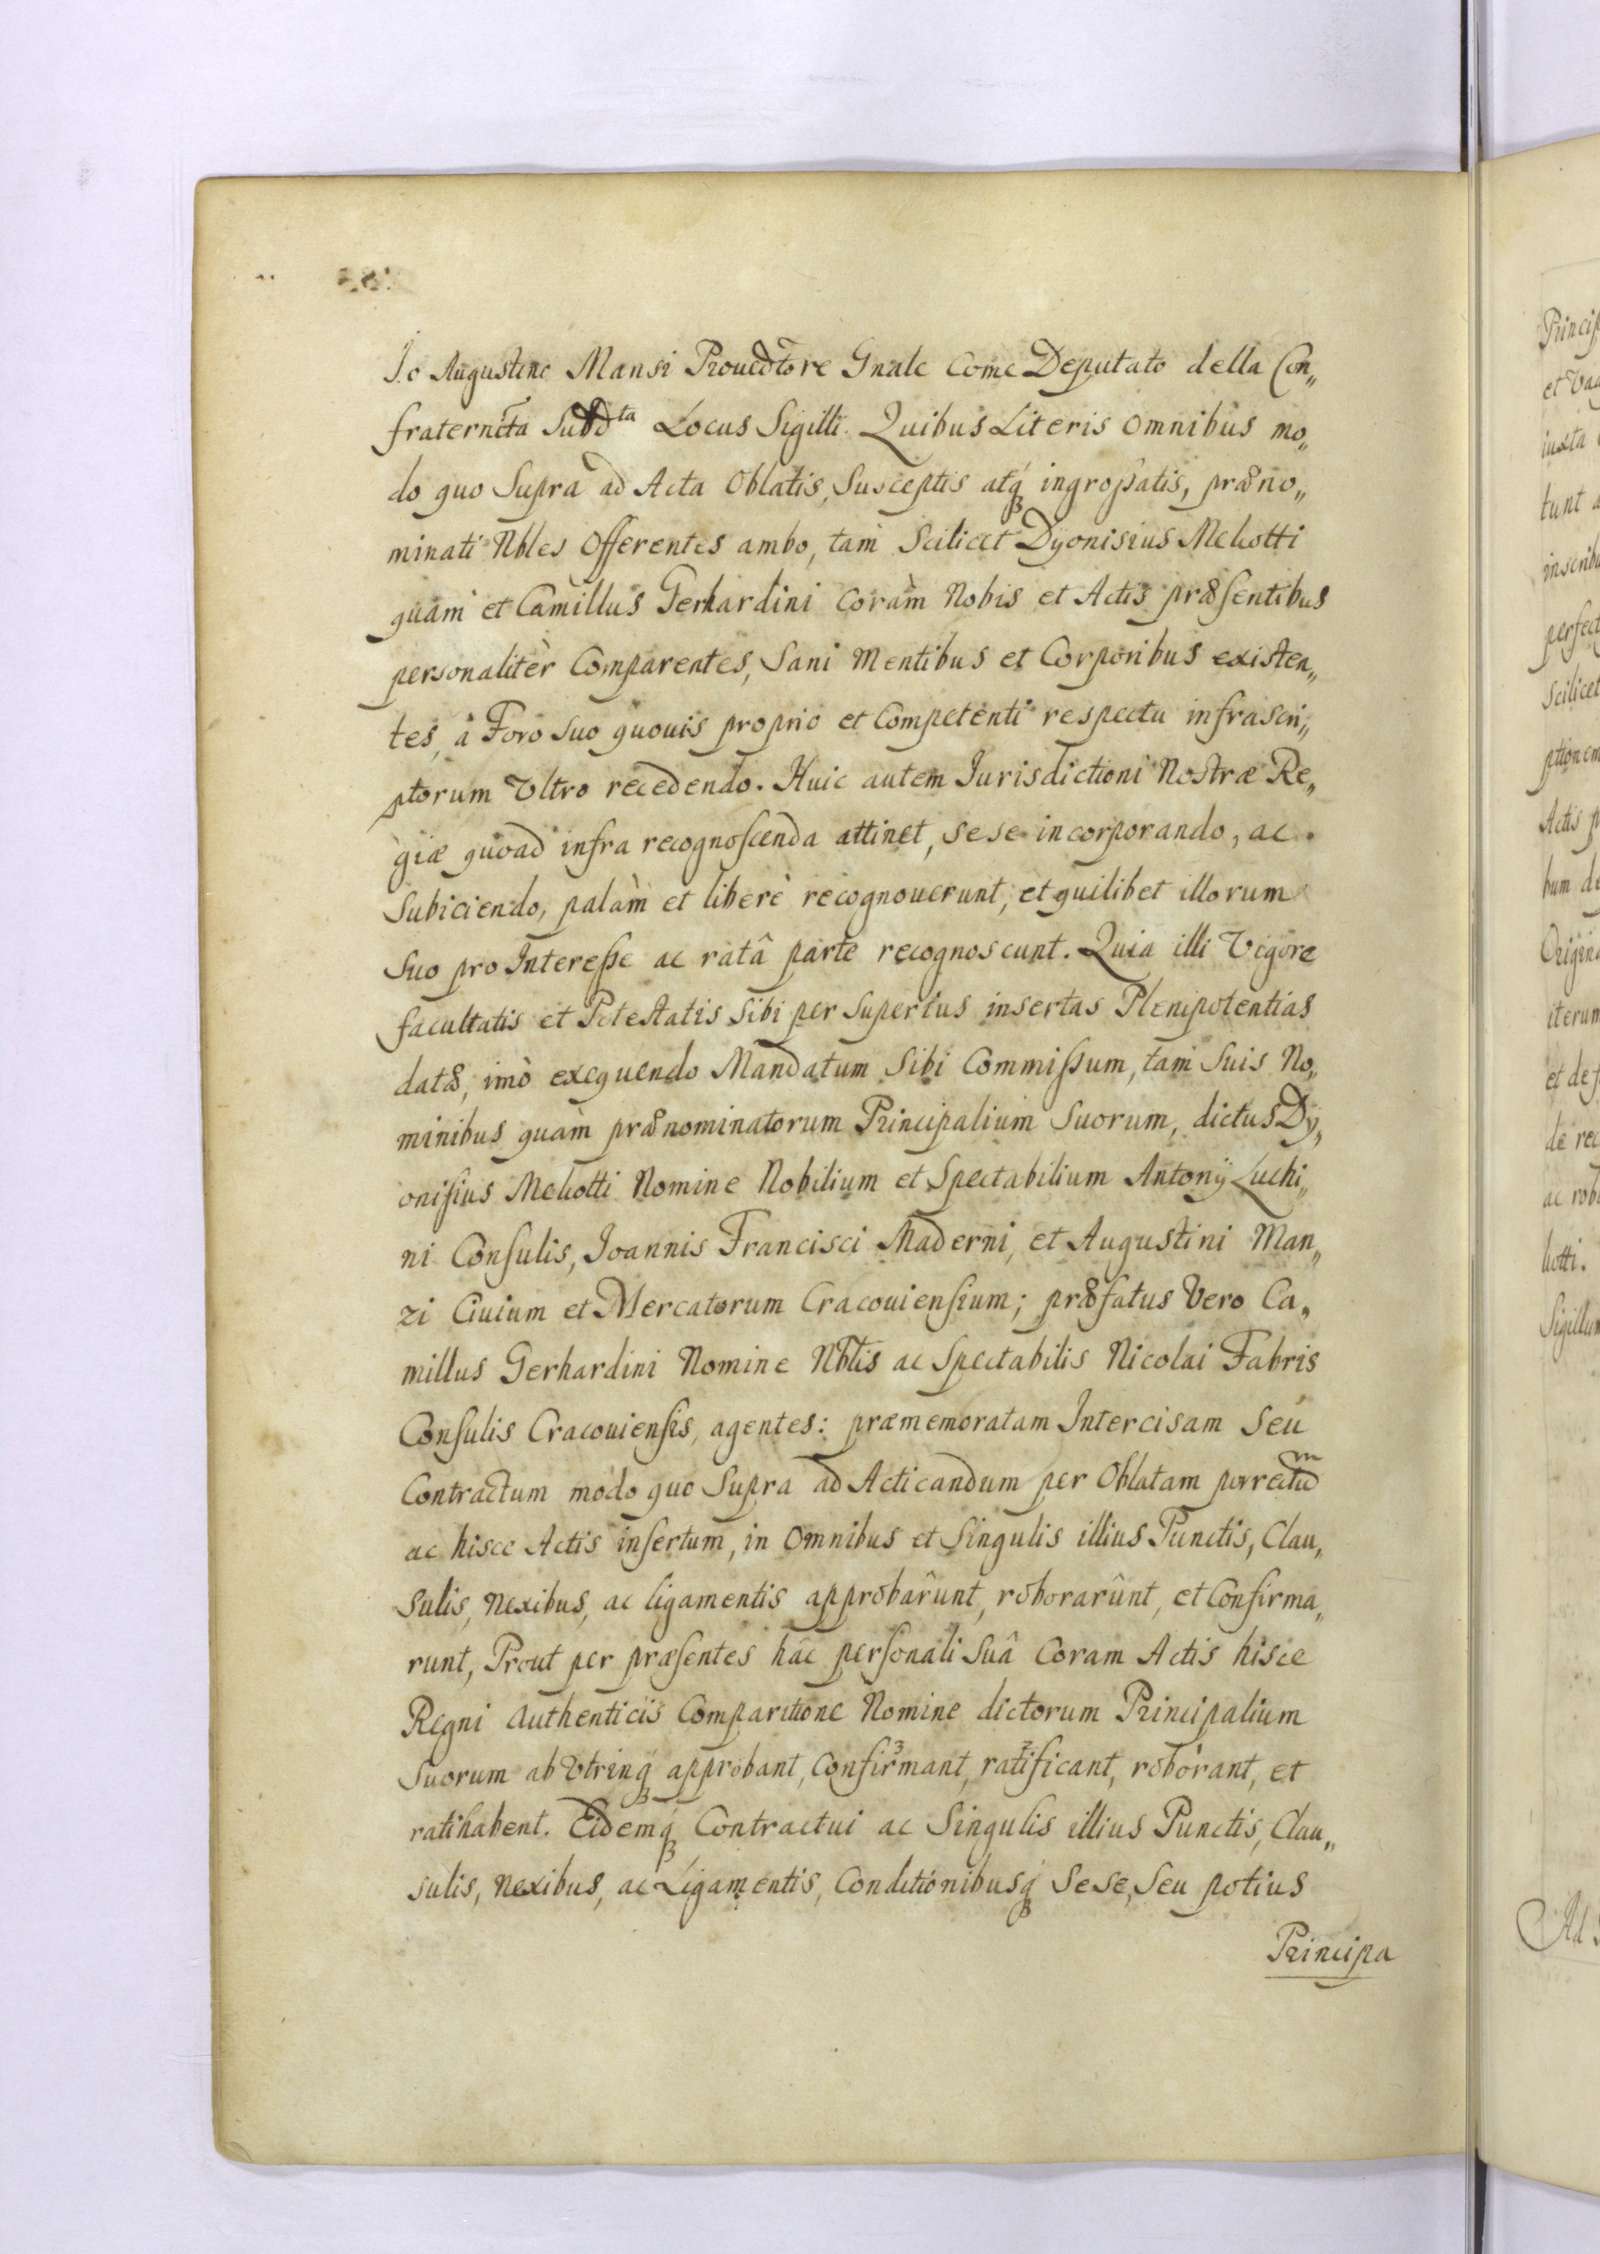 Io Augustino Mansi Prouedtore Gnale Come Deputato della Con„
fraternta Subdta Locus Sigilli. Quibus Literis omnibus mo„
do quo Supra ad Acta Oblatis, Susceptis atq₃ ingroſsatis, præno„
minati Nbles Offerentes ambo, tam Scilicet Dyonisius Meliotti
quàm et Camillus Gerhardini coràm Nobis et Actis præſentibus
personalitèr Comparentes, Sani Mentibus et Corporibus existen„
tes, à Foro Suo quouis proprio et Competenti respectu infrascri„
ptorum Vltro recedendo. Huic autem Iurisdictioni Nostræ Re„
giæ quoad infra recognoſcenda attinet, sese incorporando, ac
Subiciendo, palàm et liberè recognouerunt, et quilibet illorum
Suo pro Intereſse ac ratâ parte recognoscunt. Quia illi Vigore
facultatis et Potestatis Sibi per Superius insertas Plenipotentias
datæ, imò exequendo Mandatum Sibi Commiſsum, tam Suis No„
minibus quàm prænominatorum Principalium Suorum, dictus Dy„
oniſius Meliotti Nomine Nobilium et Spectabilium Antonij Luchi„
ni Conſulis, Ioannis Francisci Maderni, et Augustini Man„
zi Ciuium et Mercatorum Cracouienſium; præfatus Vero Ca„
millus Gerhardini Nomine Nblis ac Spectabilis Nicolai Fabris
Conſulis Cracouienſis, agentes: præmemoratam Intercisam Seu
Contractum modo quo Supra ad Acticandum per Oblatam porrectum
ac hisce Actis inſertum, in Omnibus et Singulis illius Punctis, Clau„
Sulis, Nexibus, ac ligamentis approbarûnt, roborarûnt, et Confirma„
runt, Prout per præſentes hâc perſonali Suâ Coram Actis hisce
Regni Authenticis Comparitione Nomine dictorum Principalium
Suorum ab Vtrinq₃ approbant, Confirmant, ratificant, roborant, et
ratihabent. Eidemq₃ Contractui ac Singulis illius Punctis, Clau„
sulis, Nexibus, ac Ligamentis, Conditionibusq₃ Sese, Seu potius
Principa